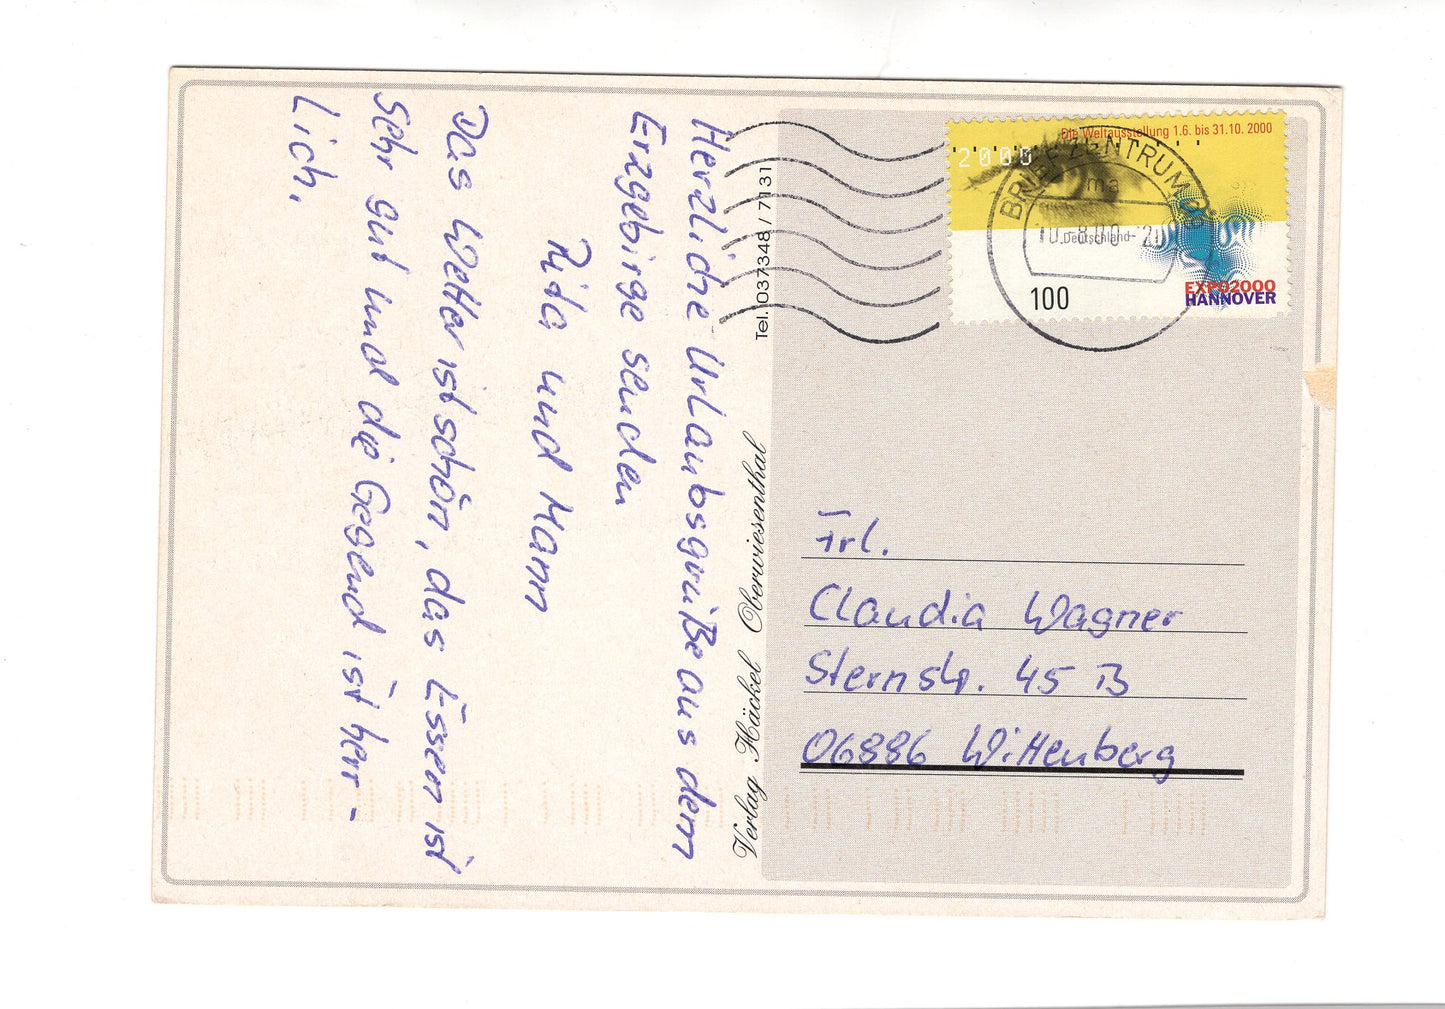 Herzliche Urlaubsgrüße aus dem
Erzgebirge senden
und Mann
Das Wetter ist schön, das Essen ist
sehr gut und die Gegend ist herr-
lich.
Verlag Häckel Oberwiesenthal
Tel. 037348 / 7131
Die Weltausstellung 1.6. bis 31.10. 2000
2000
BRIEFZENTRUM
ma
Deutschland
100
EXPO2000
HANNOVER
Frl.
Claudia Wagner
Sternstr. 45 B
06886 Wittenberg